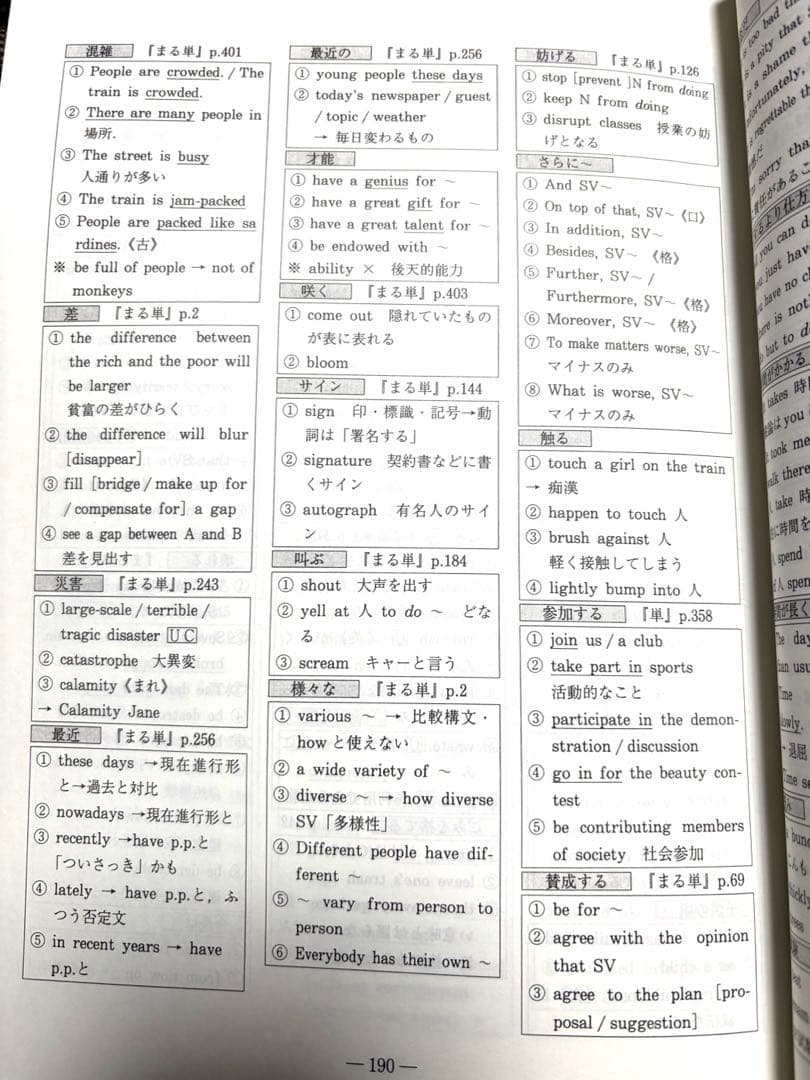 混雑 『まる単』p.401
① People are crowded. / The
train is crowded.
② There are many people in
場所.
③ The street is busy
人通りが多い
④ The train is jam-packed
⑤ People are packed like sa
rdines.《古》
※ be full of people → not of
monkeys
差 『まる単』p.2
① the difference between
the rich and the poor will
be larger
貧富の差がひらく
② the difference will blur
[disappear]
③ fill [bridge / make up for
/ compensate for] a gap
④ see a gap between A and B
差を見出す
災害 『まる単』p.243
① large-scale / terrible /
tragic disaster UC
② catastrophe 大異変
③ calamity《まれ》
→ Calamity Jane
最近 『まる単』p.256
① these days →現在進行形
と→過去と対比
② nowadays →現在進行形と
③ recently →have p.p.と
「ついさっき」かも
④ lately → have p.p.と, ふ
つう否定文
⑤ in recent years → have
p.p.と
最近の 『まる単』p.256
① young people these days
② today's newspaper / guest
/ topic / weather
→ 毎日変わるもの
才能
① have a genius for ～
② have a great gift for ～
③ have a great talent for ～
④ be endowed with ～
※ ability × 後天的能力
咲く 『まる単』p.403
① come out 隠れていたもの
が表に表れる
② bloom
サイン 『まる単』p.144
① sign 印・標識・記号→動
詞は「署名する」
② signature 契約書などに書
くサイン
③ autograph 有名人のサイ
ン
叫ぶ 『まる単』p.184
① shout 大声を出す
② yell at 人 to do ～ どな
る
③ scream キャーと言う
様々な 『まる単』p.2
① various ～ → 比較構文・
howと使えない
② a wide variety of ～
③ diverse ～ → how diverse
SV「多様性」
④ Different people have dif-
ferent ～
⑤ ～ vary from person to
person
⑥ Everybody has their own ～
妨げる 『まる単』p.126
① stop [prevent ]N from doing
② keep N from doing
③ disrupt classes 授業の妨
げとなる
さらに～
① And SV～
② On top of that, SV～《口》
③ In addition, SV～
④ Besides, SV～ 《格》
⑤ Further, SV～ /
Furthermore, SV～《格》
⑥ Moreover, SV～ 《格》
⑦ To make matters worse, SV～
マイナスのみ
⑧ What is worse, SV～
マイナスのみ
触る
① touch a girl on the train
→ 痴漢
② happen to touch 人
③ brush against 人
軽く接触してしまう
④ lightly bump into 人
参加する 『単』p.358
① join us / a club
② take part in sports
活動的なこと
③ participate in the demon-
stration / discussion
④ go in for the beauty con-
test
⑤ be contributing members
of society 社会参加
賛成する 『まる単』p.69
① be for ～
② agree with the opinion
that SV
③ agree to the plan [pro-
posal / suggestion]
— 190 —